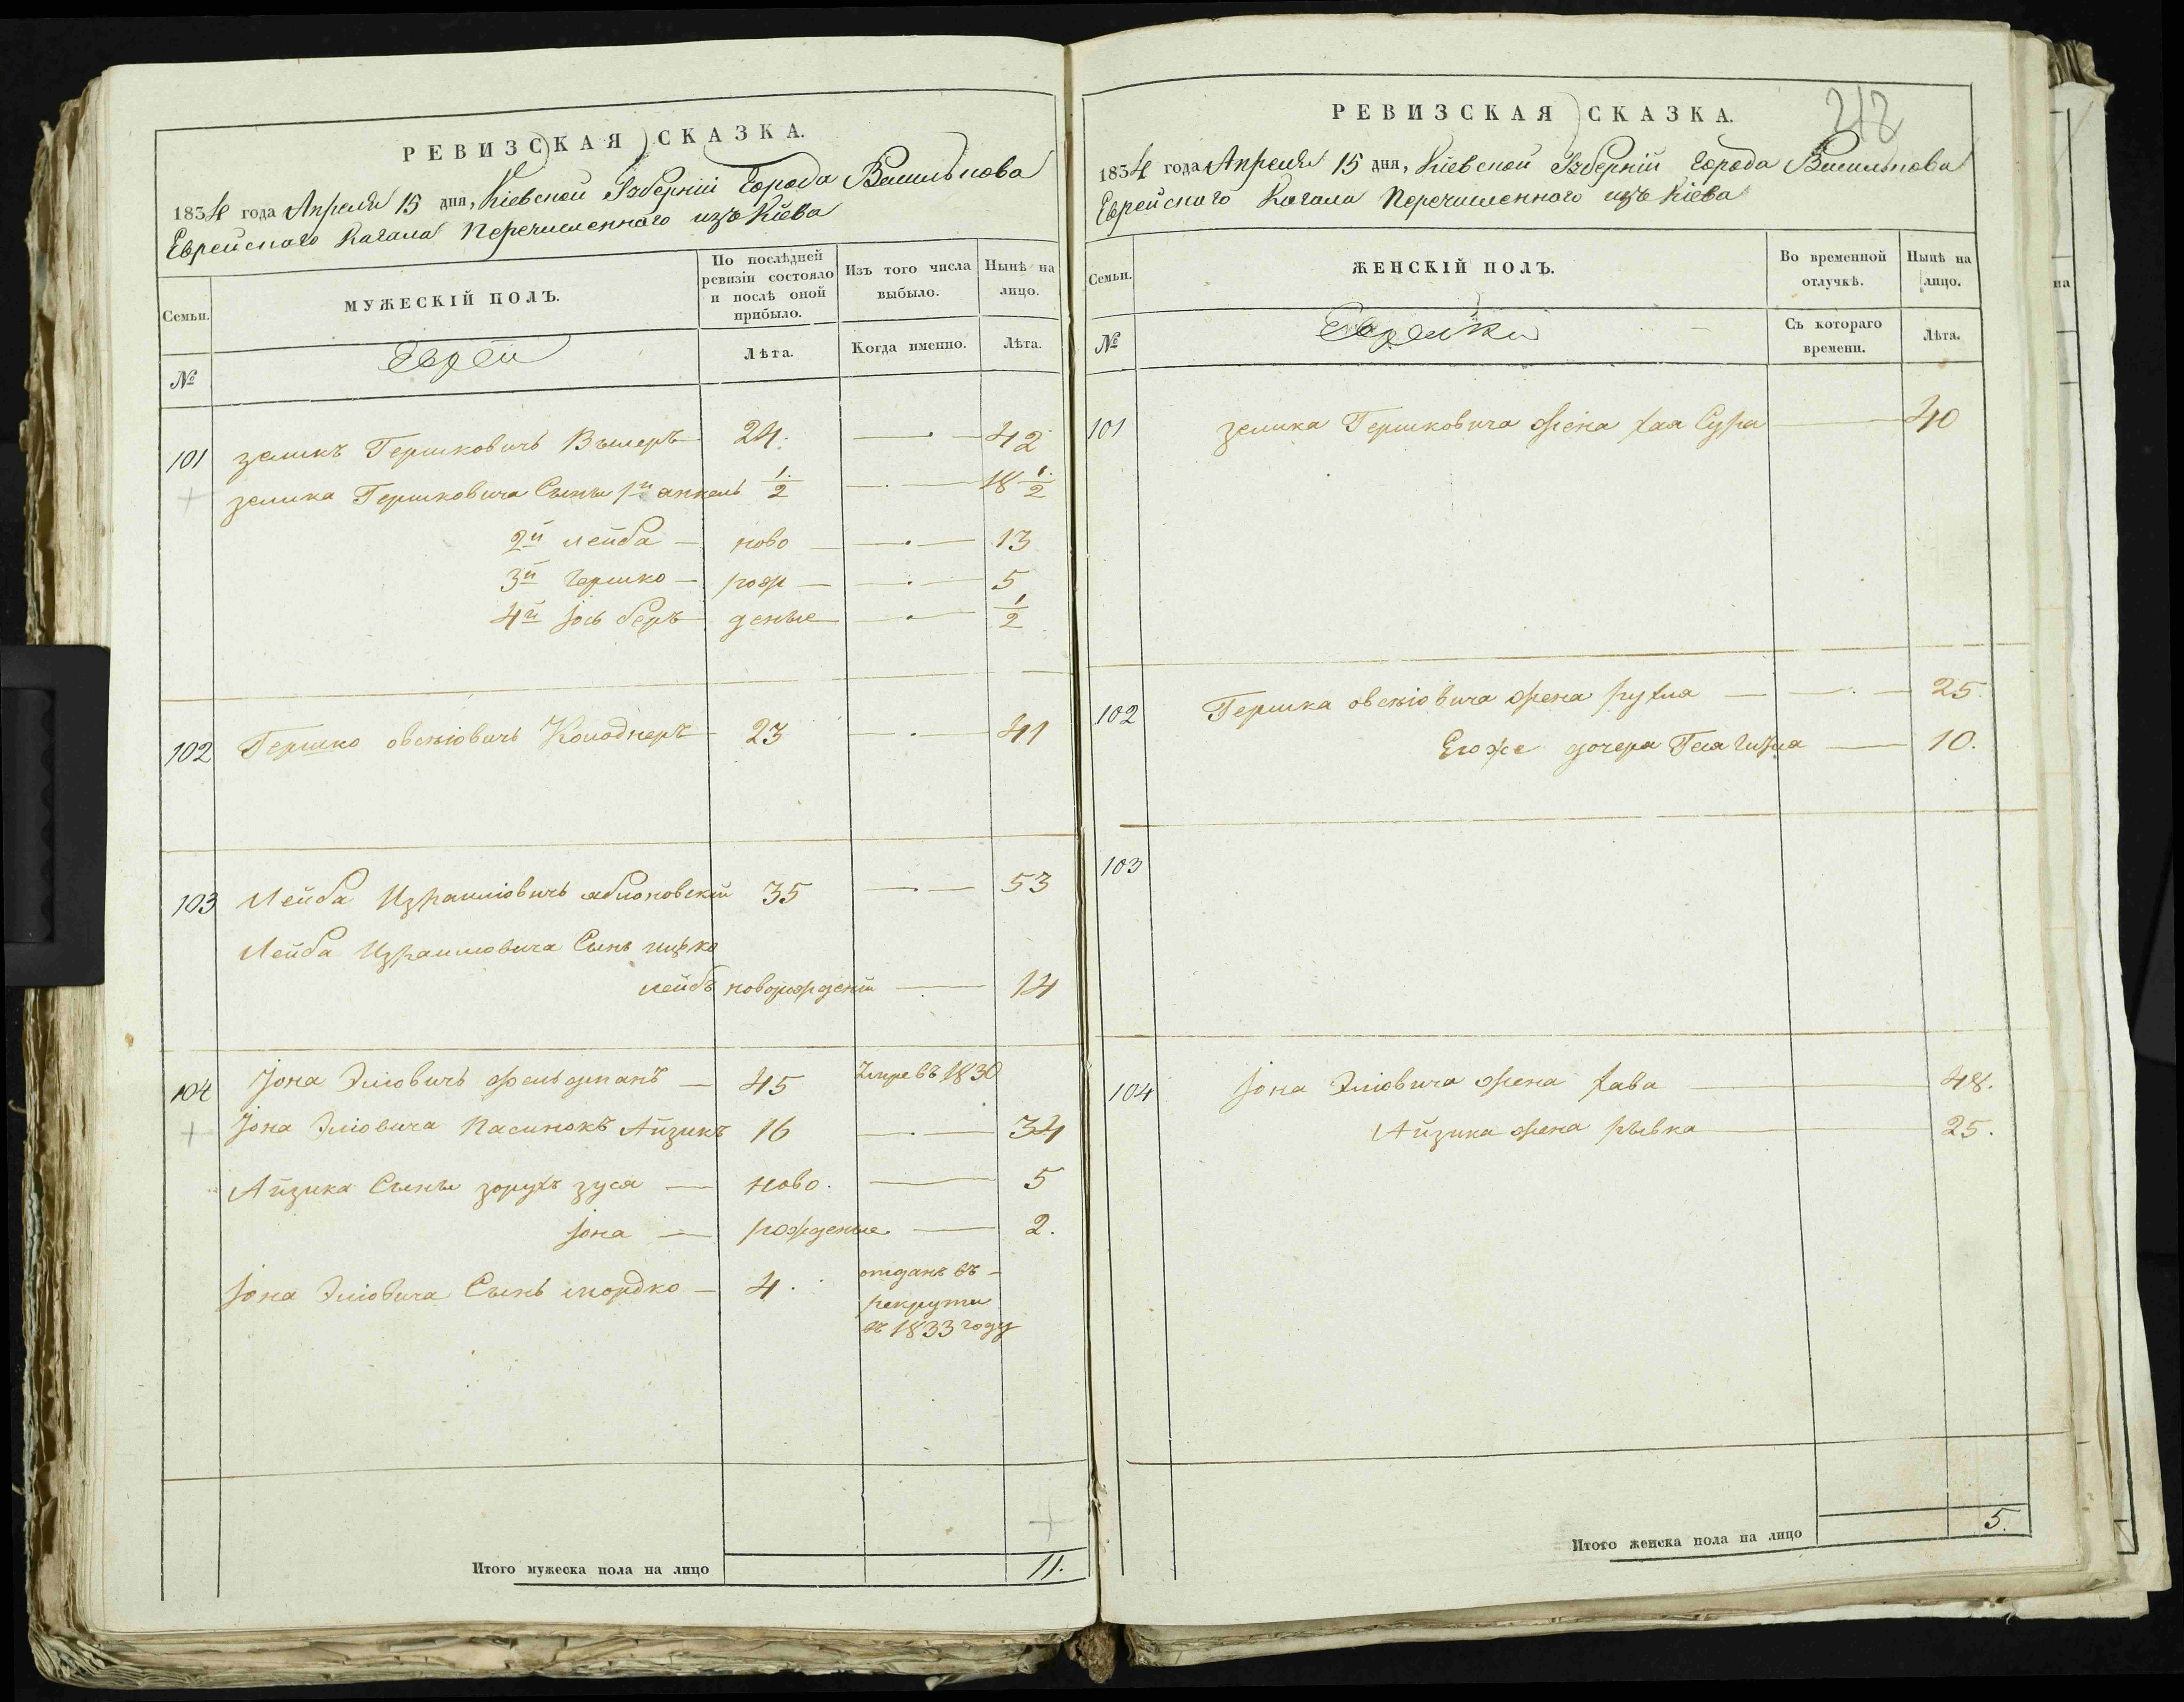 РЕВИЗСКАЯ СКАЗКА.
1834 года Апреля 15 дня, Кіевской Губерніи Города Василькова
Еврейскаго Кагала Перечисленнаго изъ Кіева
Семьи.
МУЖЕСКІЙ ПОЛЪ.
По послѣдней ревизіи состояло и послѣ оной прибыло.
Изъ того числа выбыло.
Нынѣ на лицо.
№
Евреи
Лѣта.
Когда именно.
Лѣта.
101 зеликъ Гершковичъ 24. 42
зелика Гершковича Сыны 1й анкель 1/2 18 1/2
2й лейба ново 13
3й гершко рож 5
4й Іось беръ деные 1/2
102 Гершко овсѣіовичъ Колоднеръ 23 41
103 Лейба Израиліовичъ аблоновскій 35 53
Лейба Израиліовича Сынъ ицко
лейбъ новорожденій 14
104 Іона Эліовичъ фельдманъ 45 Умре въ 1830
Іона Эліовича Пасинокъ Айзикъ 16 34
Айзика Сыны зорухъ зуся ново. 5
Іона рожденые 2.
Іона Эліовича Сынъ мордко 4. отданъ въ
рекруты
въ 1833 году
Итого мужеска пола на лицо 11.
212
РЕВИЗСКАЯ СКАЗКА.
1834 года Апреля 15 дня, Кіевской Губерніи Города Василькова
Еврейскаго Кагала Перечисленного изъ Кіева
Семьи.
ЖЕНСКІЙ ПОЛЪ.
Во временной отлучкѣ.
Нынѣ на лицо.
№
Еврейки
Съ котораго времени.
Лѣта.
101 зелика Гершковича жена хая Сура 40
102 Гершка овсѣіовича жена рухля 25.
Егоже дочера 10.
103
104 Іона Эліовича жена хава 48.
Айзика жена рывка 25.
Итого женска пола на лицо 5.
на